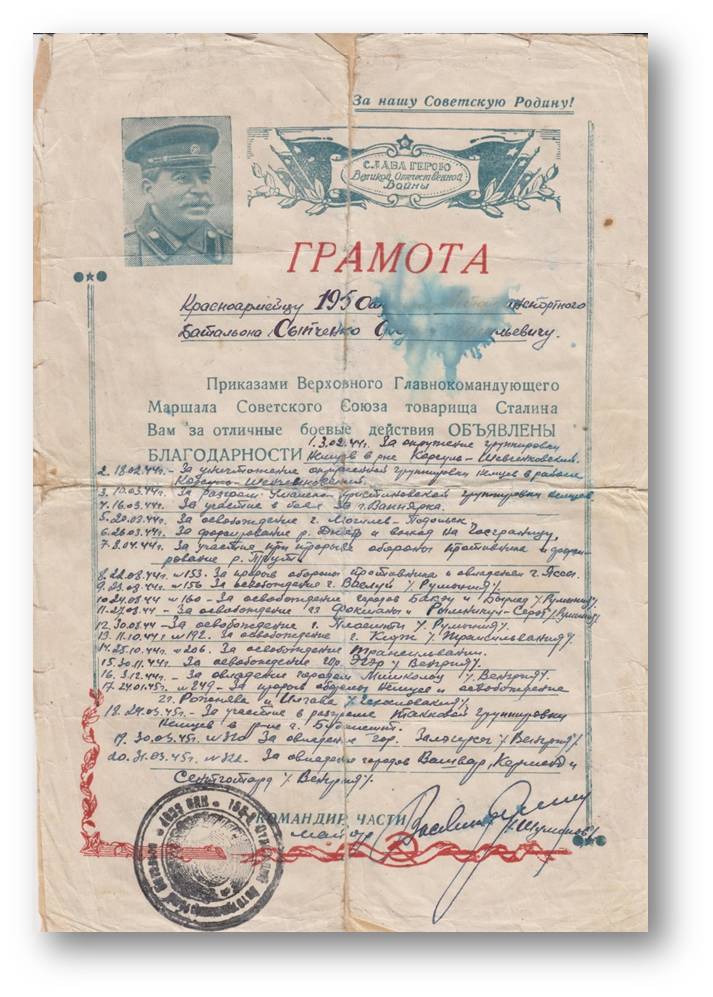 За нашу Советскую Родину!
СЛАВА ГЕРОЮ
Великой Отечественной
Войны
ГРАМОТА
Красноармейцу 195
Батальона Сытченко
Приказами Верховного Главнокомандующего
Маршала Советского Союза товарища Сталина
Вам за отличные боевые действия ОБЪЯВЛЕНЫ
БЛАГОДАРНОСТИ 1. 3.02.44г. За окружение группировки
немцев в р-не Корсунь-Шевченковский.
2. 18.02.44г. - За уничтожение окруженной группировки немцев в районе
Корсунь-Шевченковский.
3. 10.03.44г. За разгром Уманско-Христиновской группировки немцев
4. 16.03.44г. За участие в боях за г. Вапнярка.
5. 20.03.44г. За освобождение г. Могилев-Подольск.
6. 26.03.44г. За форсирование р. Днестр и выход на Госграницу.
7. 8.04.44г. За участие при прорыве обороны противника и форси-
рование р. Прут.
8. 22.08.44г. №153. За прорыв обороны противника и овладении г. Яссы.
9. 23.08.44г. №156 За освобождение г. Васлуй /Румыния/.
10. 24.08.44 №160 - За освобождение городов Бакэу и Бырлад /Румыния/.
11. 27.08.44 - За освобождение гг Фокшаны и Рымникул-Сэрат /Румыния/
12. 30.08.44 - За освобождение г. Плоешты /Румыния/.
13. 11.10.44г №192. За освобождение г. Клуж /Трансильвания/.
14. 25.10.44г. №206. За освобождение Трансильвании.
15. 30.11.44г. За освобождение гор. Эгер /Венгрия/.
16. 3.12.44г. - За овладение городом Мишкольц /Венгрия/.
17. 24.01.45г. №249 - За прорыв обороны немцев и освобождение
гг. Рожнява и Иелшава /Чехословакия/.
18. 24.03.45г. - За участие в разгроме танковой группировки
немцев в р-не г. Будапешт.
19. 30.03.45г. №320 За овладение гор. Залоегрсег /Венгрия/.
20. 31.03.45г. №322 - За овладение городов Вашвар, Керменд и
Сентготард /Венгрия/.
КОМАНДИР ЧАСТИ
майор